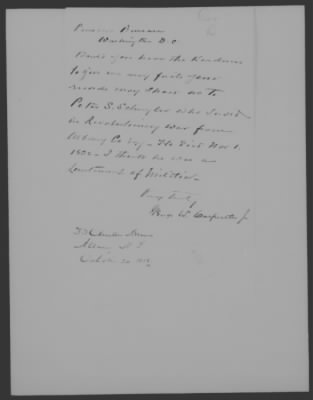 Pension Bureau
Washington D.C.
Would you have the kindness
to give me any facts your
records may show as to
Peter S. Schuyler who served
in Revolutionary War from
Albany Co. He died Nov 1.
I think he was a
Lieutenant of Militia.
Very truly,
Geo. W. Carpenter Jr
Albany N.Y.